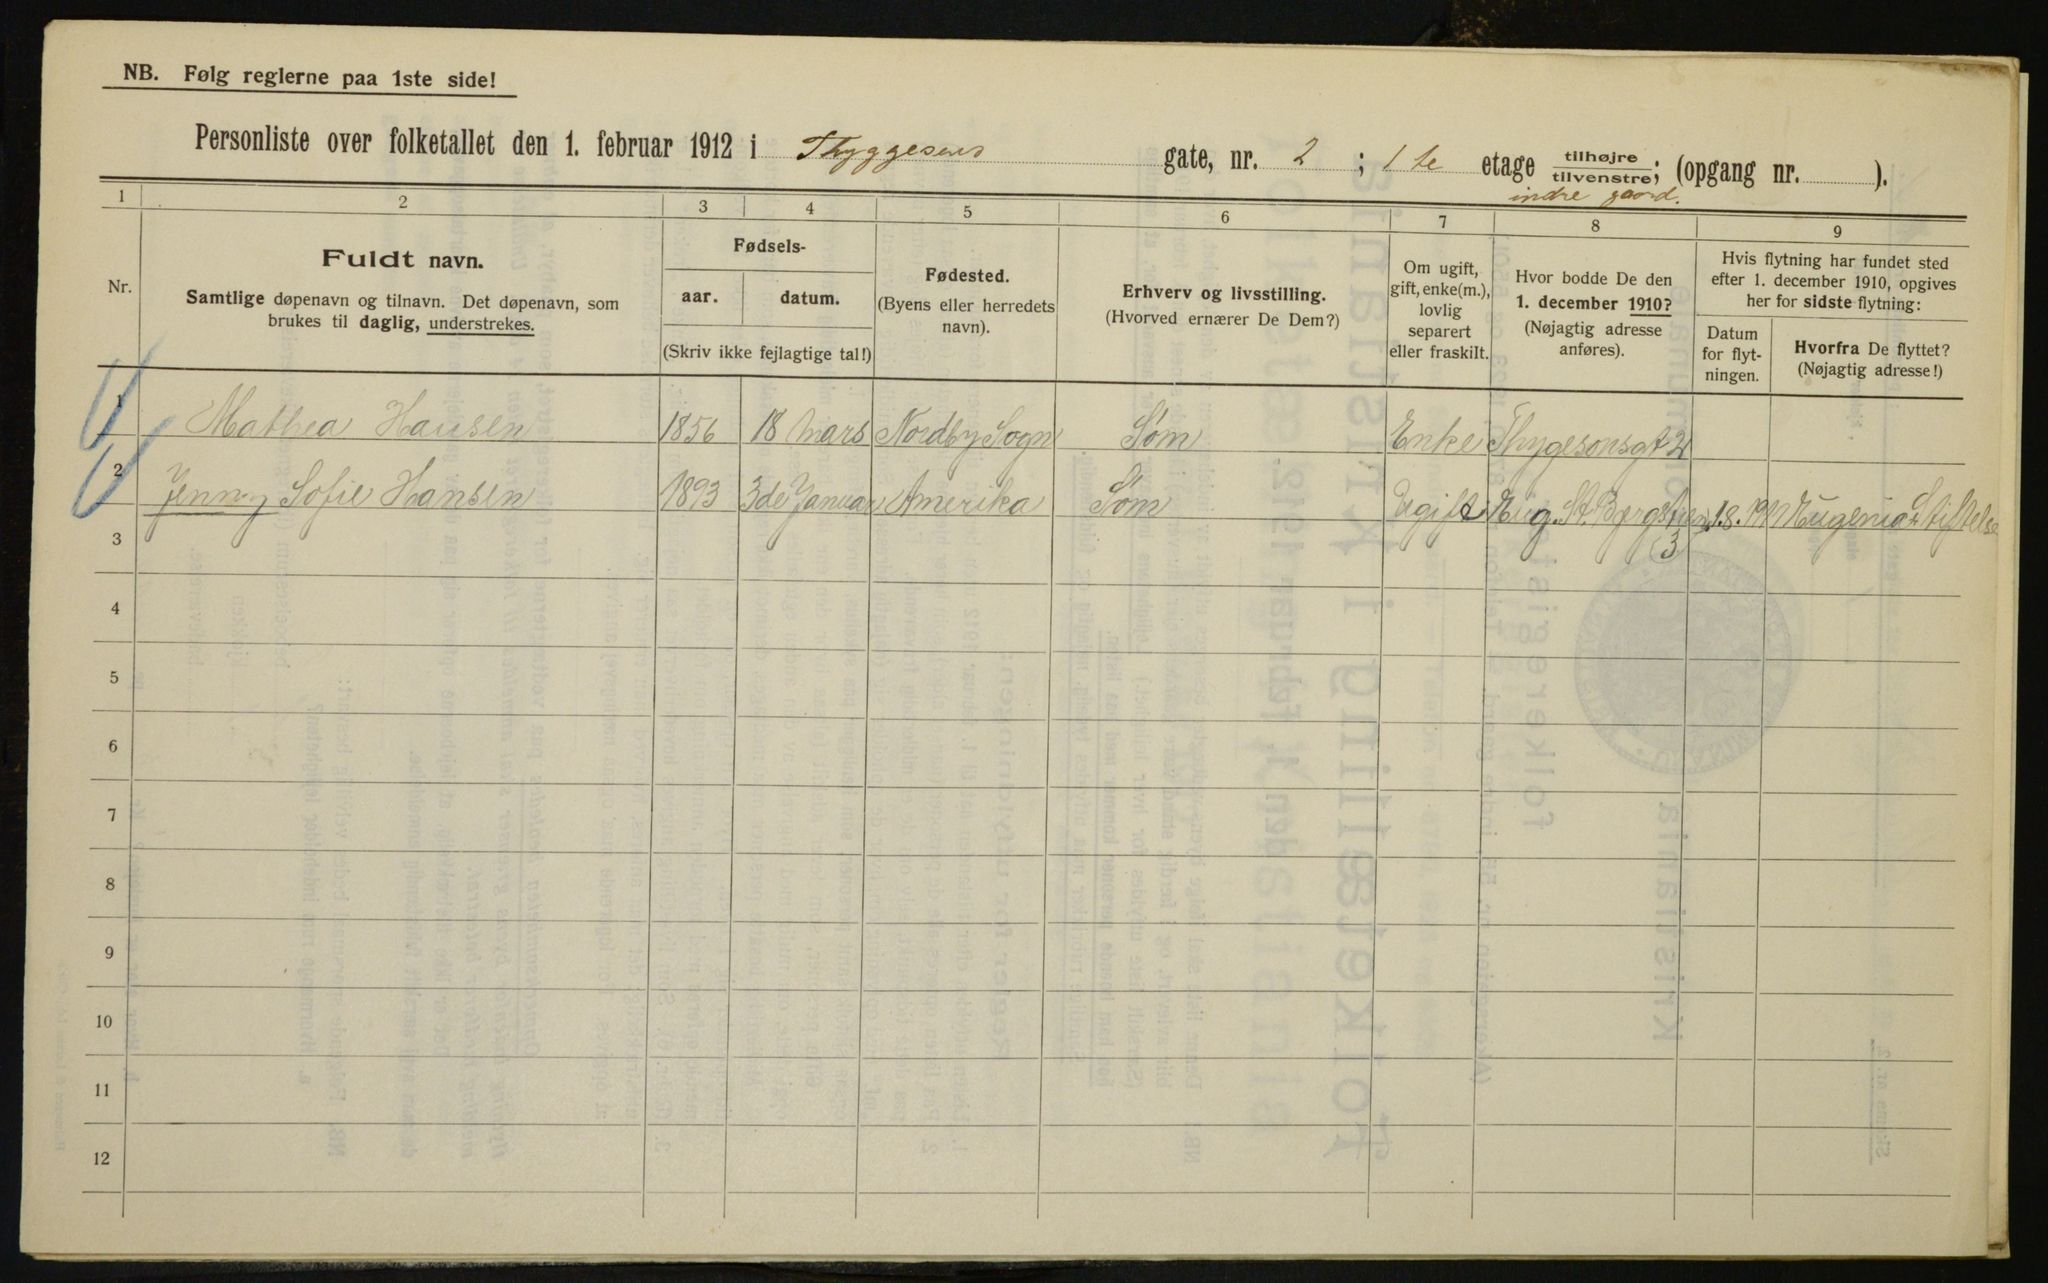 NB. Følg reglerne paa 1ste side!
Personliste over folketallet den 1. februar 1912 i Thyggesens gate, nr. 2 ; 1 te etage tilhøjre tilvenstre; (opgang nr. ).
indre gaard.
1 2 3 4 5 6 7 8 9
Nr.
Fuldt navn.
Samtlige døpenavn og tilnavn. Det døpenavn, som
brukes til daglig, understrekes.
Fødsels-
aar. datum.
(Skriv ikke fejlagtige tal!)
Fødested.
(Byens eller herredets
navn).
Erhverv og livsstilling.
(Hvorved ernærer De Dem?)
Om ugift,
gift, enke(m.),
lovlig
separert
eller fraskilt.
Hvor bodde De den
1. december 1910?
(Nøjagtig adresse
anføres).
Hvis flytning har fundet sted
efter 1. december 1910, opgives
her for sidste flytning:
Datum
for flyt-
ningen.
Hvorfra De flyttet?
(Nøjagtig adresse!)
1 Mathea Hansen 1856 18 Mars Nordby Sogn Søm Enke Thygesonsgt 2
2 Jenny Sofie Hansen 1893 3de Januar Amerika Søm Ugift Eug. St. 1.8. Eugenia Stiftelse
3
3
4
5
6
7
8
9
10
11
12